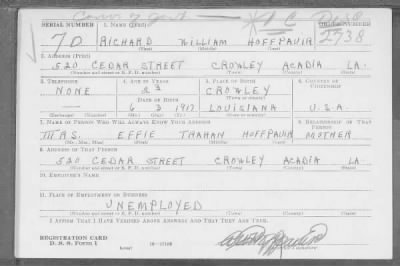 SERIAL NUMBER 1. NAME (Print) ORDER NUMBER
70 RICHARD WILLIAM HOFFPAUIR 2738
(First) (Middle) (Last)
2. ADDRESS (Print)
520 CEDAR STREET CROWLEY ACADIA LA.
(Number and street or R. F. D. number) (Town) (County) (State)
3. TELEPHONE 4. AGE IN YEARS 5. PLACE OF BIRTH 6. COUNTRY OF CITIZENSHIP
NONE 23 CROWLEY
DATE OF BIRTH (Town or county)
6 3 1917 LOUISIANA U.S.A.
(Exchange) (Number) (Mo.) (Day) (Yr.) (State or country)
7. NAME OF PERSON WHO WILL ALWAYS KNOW YOUR ADDRESS 8. RELATIONSHIP OF THAT PERSON
MRS. EFFIE TRAHAN HOFFPAUIR MOTHER
(Mr., Mrs., Miss) (First) (Middle) (Last)
9. ADDRESS OF THAT PERSON
520 CEDAR STREET CROWLEY ACADIA LA.
(Number and street or R. F. D. number) (Town) (County) (State)
10. EMPLOYER'S NAME
11. PLACE OF EMPLOYMENT OR BUSINESS
UNEMPLOYED
(Number and street or R. F. D. number) (Town) (County) (State)
I AFFIRM THAT I HAVE VERIFIED ABOVE ANSWERS AND THAT THEY ARE TRUE.
REGISTRATION CARD
D. S. S. Form 1 (over)